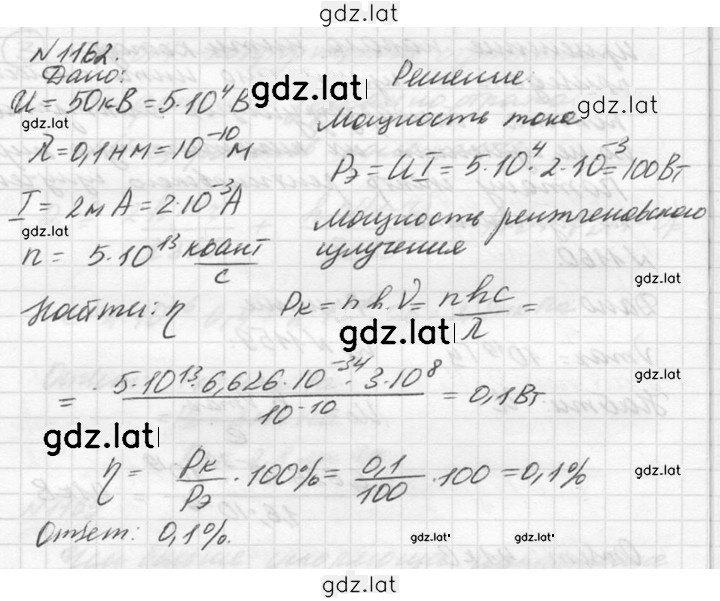 gdz.lat
N 1162.
Дано:
U = 50кВ = 5·10⁴ В
gdz.lat
gdz.lat
λ = 0,1нм = 10⁻¹⁰м
I = 2мА = 2·10⁻³А
gdz.lat
n = 5·10¹³ квант/с
Найти: η
Решение:
gdz.lat
Мощность тока
Pэ = UI = 5·10⁴·2·10⁻³ = 100Вт
Мощность рентгеновского
излучения
gdz.lat
Pк = n h.ν = nhc/λ =
gdz.lat
= 5·10¹³·6,626·10⁻³⁴·3·10⁸/10⁻¹⁰ = 0,1Вт
gdz.lat
gdz.lat
η = Pк/Pэ · 100% = 0,1/100 · 100 = 0,1%
gdz.lat
Ответ: 0,1%.
gdz.lat
gdz.lat
gdz.lat